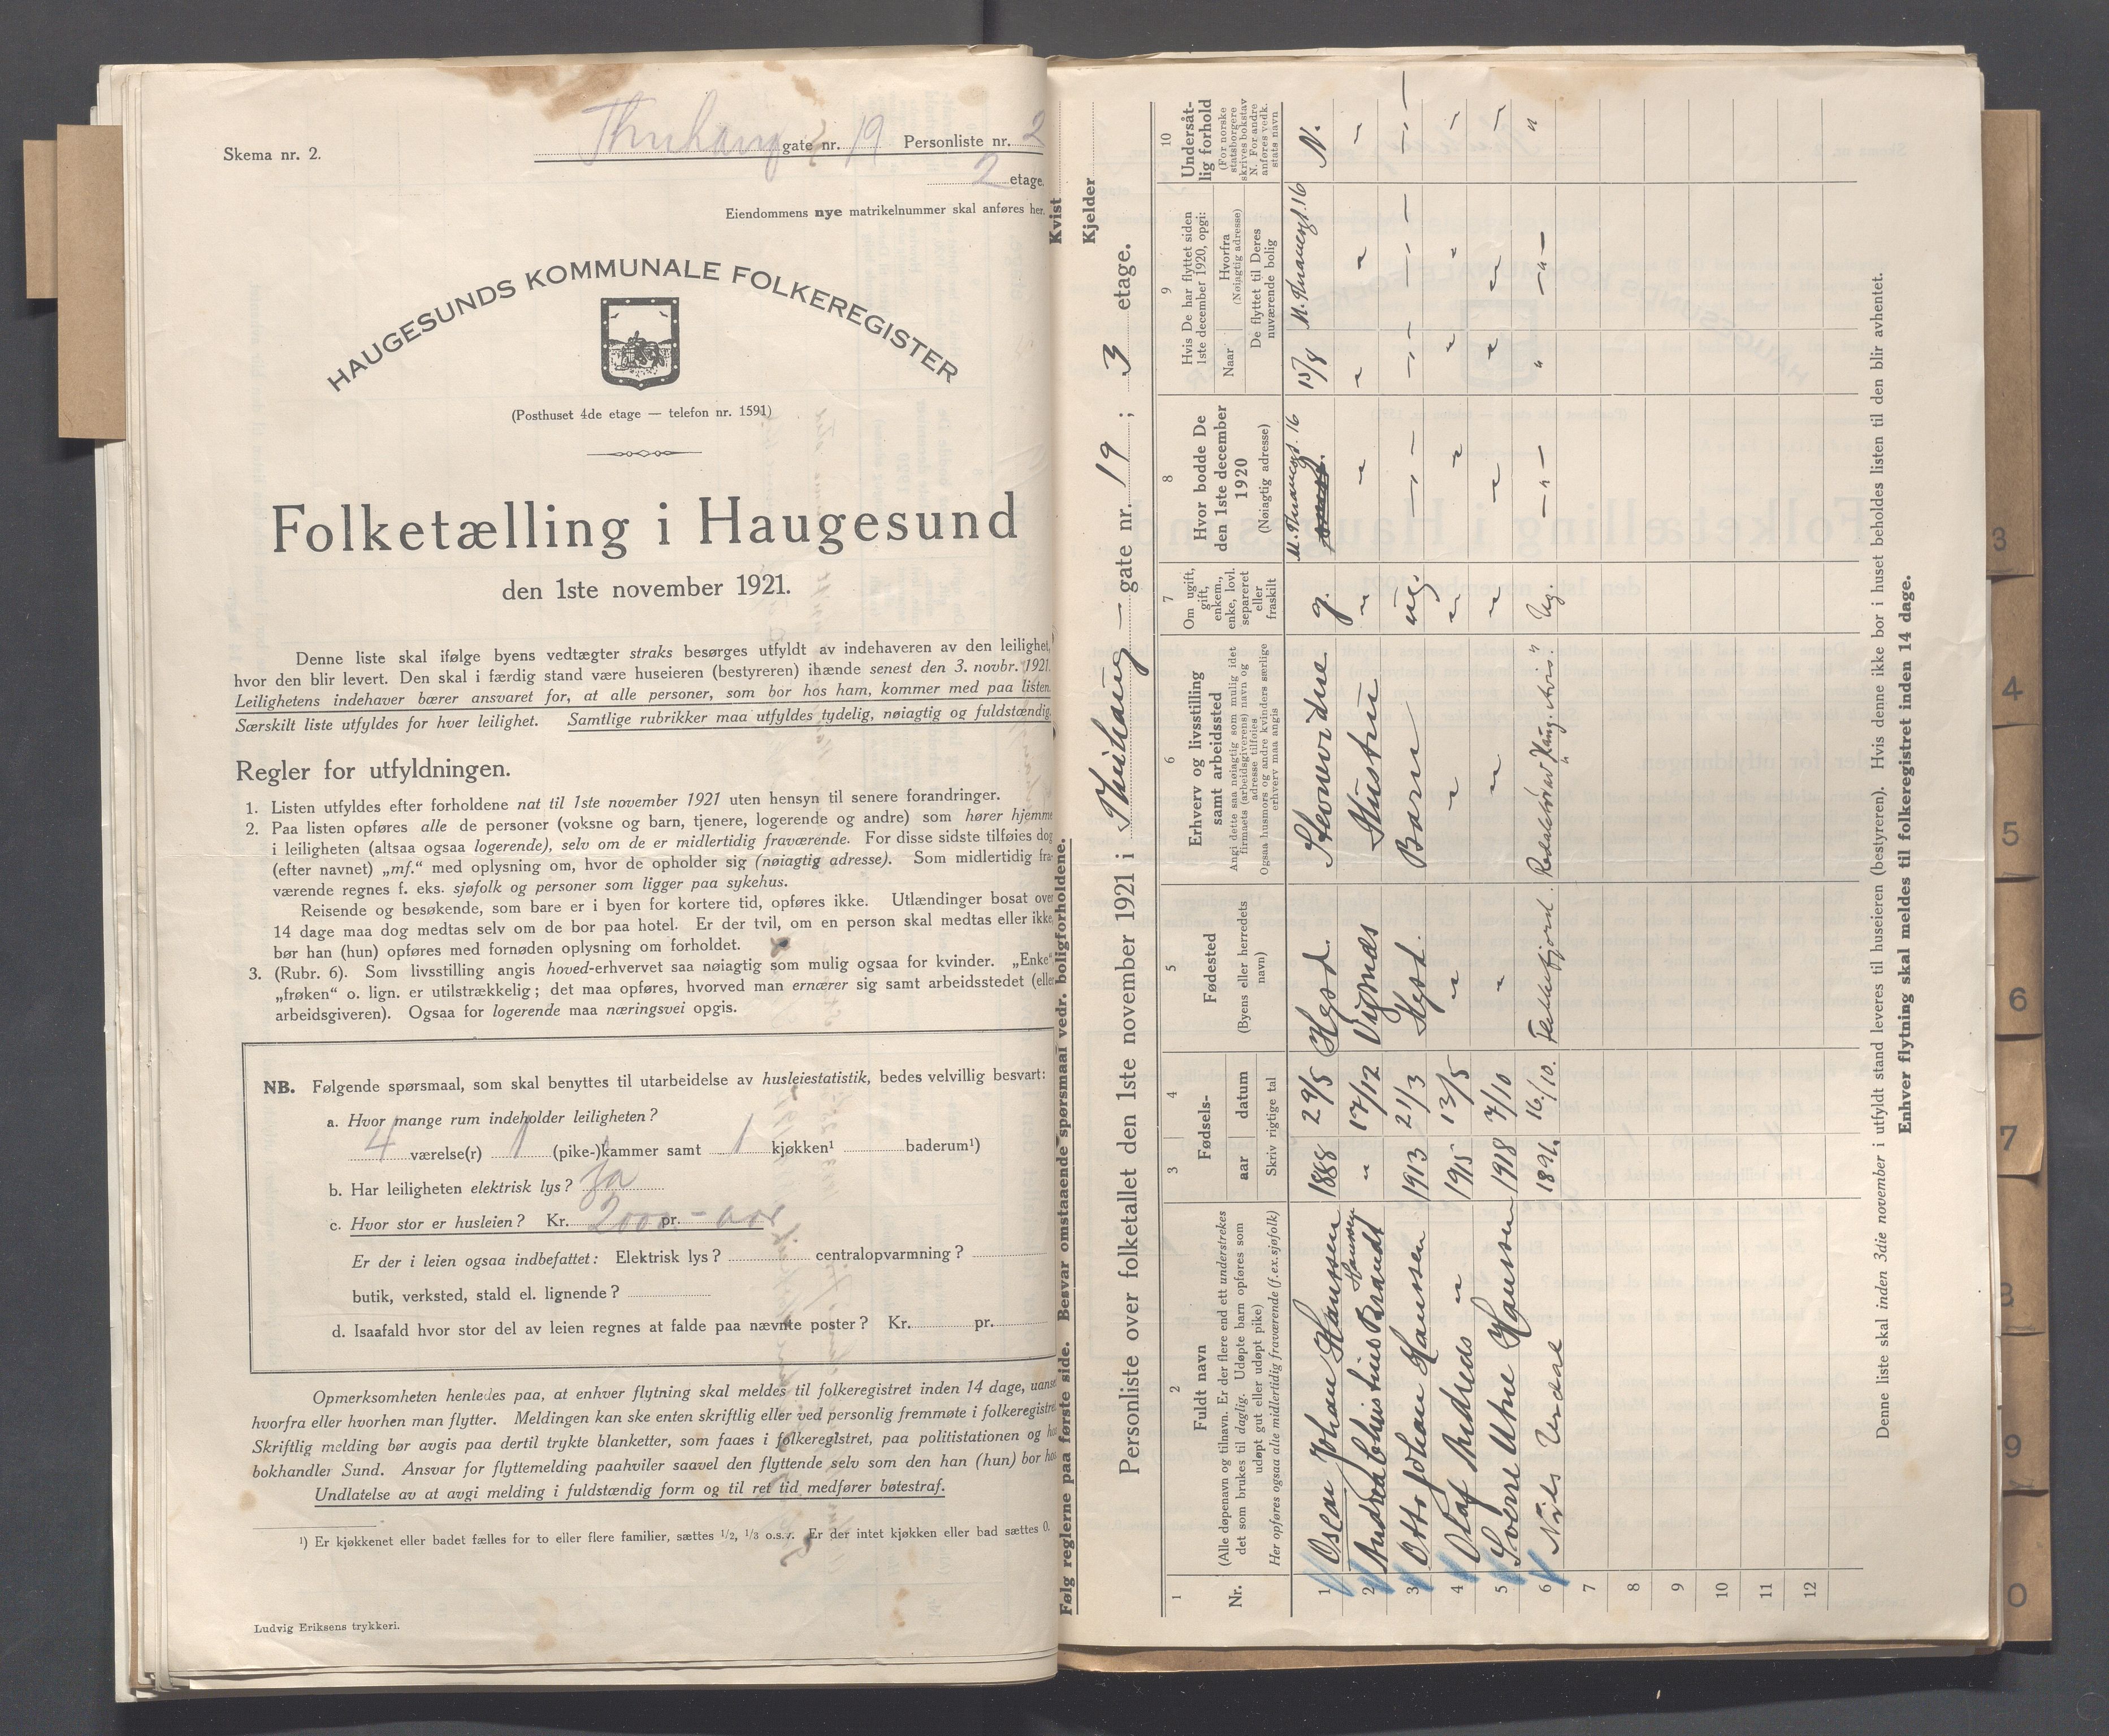 Skema nr. 2.
gate nr. 19 Personliste nr. 2
2 etage.
Eiendommens nye matrikelnummer skal anføres her.
HAUGESUNDS KOMMUNALE FOLKEREGISTER
(Posthuset 4de etage — telefon nr. 1591)
Folketælling i Haugesund
den 1ste november 1921.
Denne liste skal ifølge byens vedtægter straks besørges utfyldt av indehaveren av den leilighet,
hvor den blir levert. Den skal i færdig stand være huseieren (bestyreren) ihænde senest den 3. novbr. 1921.
Leilighetens indehaver bærer ansvaret for, at alle personer, som bor hos ham, kommer med paa listen.
Særskilt liste utfyldes for hver leilighet. Samtlige rubrikker maa utfyldes tydelig, nøiagtig og fuldstændig.
Regler for utfyldningen.
1. Listen utfyldes efter forholdene nat til 1ste november 1921 uten hensyn til senere forandringer.
2. Paa listen opføres alle de personer (voksne og barn, tjenere, logerende og andre) som hører hjemme
i leiligheten (altsaa ogsaa logerende), selv om de er midlertidig fraværende. For disse sidste tilføies dog
(efter navnet) „mf.“ med oplysning om, hvor de opholder sig (nøiagtig adresse). Som midlertidig fra-
værende regnes f. eks. sjøfolk og personer som ligger paa sykehus.
Reisende og besøkende, som bare er i byen for kortere tid, opføres ikke. Utlændinger bosat over
14 dage maa dog medtas selv om de bor paa hotel. Er der tvil, om en person skal medtas eller ikke,
bør han (hun) opføres med fornøden oplysning om forholdet.
3. (Rubr. 6). Som livsstilling angis hoved-erhvervet saa nøiagtig som mulig ogsaa for kvinder. „Enke“
„frøken“ o. lign. er utilstrækkelig; det maa opføres, hvorved man ernærer sig samt arbeidsstedet (eller
arbeidsgiveren). Ogsaa for logerende maa næringsvei opgis.
NB. Følgende spørsmaal, som skal benyttes til utarbeidelse av husleiestatistik, bedes velvillig besvart:
a. Hvor mange rum indeholder leiligheten?
4 værelse(r) 1 (pike-)kammer samt 1 kjøkken¹ baderum¹)
b. Har leiligheten elektrisk lys? Ja
c. Hvor stor er husleien? Kr. 2000.- pr. aar
Er der i leien ogsaa indbefattet: Elektrisk lys? centralopvarmning?
butik, verksted, stald el. lignende?
d. Isaafald hvor stor del av leien regnes at falde paa nævnte poster? Kr. pr.
Opmerksomheten henledes paa, at enhver flytning skal meldes til folkeregistret inden 14 dage, uanset
hvorfra eller hvorhen man flytter. Meldingen kan ske enten skriftlig eller ved personlig fremmøte i folkeregistret.
Skriftlig melding bør avgis paa dertil trykte blanketter, som faaes i folkeregistret, paa politistationen og hos
bokhandler Sund. Ansvar for flyttemelding paahviler saavel den flyttende selv som den han (hun) bor hos
Undlatelse av at avgi melding i fuldstændig form og til ret tid medfører bøtestraf.
¹) Er kjøkkenet eller badet fælles for to eller flere familier, sættes 1/2, 1/3 o.s.v. Er der intet kjøkken eller bad sættes 0.
Ludvig Eriksens trykkeri.
Følg reglerne paa første side. Besvar omstaaende spørsmaal vedr. boligforholdene.
Kvist
Kjelder
Personliste over folketallet den 1ste november 1921 i gate nr. 19 ; 3 etage.
1 2 3 4 5 6 7 8 9 10
Nr.
Fuldt navn
(Alle døpenavn og tilnavn. Er der flere end ett understrekes
det som brukes til daglig. Udøpte barn opføres som
udøpt gut eller udøpt pike)
Her opføres ogsaa alle midlertidig fraværende (f.ex.sjøfolk)
Fødsels-
aar datum
Skriv rigtige tal
Fødested
(Byens eller herredets
navn)
Erhverv og livsstilling
samt arbeidssted
Angi dette saa nøiagtig som mulig idet
firmaets (arbeidsgiverens) navn og
adresse tilføies
Ogsaa husmors og andre kvinders særlige
erhverv maa angis
Om ugift,
gift,
enkem.,
enke, lovl.
separeret
eller
fraskilt
Hvor bodde De
den 1ste december
1920
(Nøiagtig adresse)
Hvis De har flyttet siden
1ste december 1920, opgi:
Naar Hvorfra
(Nøiagtig adresse)
De flyttet til Deres
nuværende bolig
Undersåt-
lig forhold
(For norske
statsborgere
skrives bokstav
N. For andre
anføres vedk.
stats navn
1 Oscar Johan Hanssen 1888 29/5 Hgsd. g. 15/8 N.
2 Andrea Christine Brandt Hanssen " 17/12 Vigsnæs Hustru " " " " "
3 Otto Johan Hanssen 1913 21/3 Hgsd. Barn ug. — " — — " — — " — — " —
4 Olaf Andreas " 1915 13/5 " " " " " " "
5 Sverre Utne Hanssen 1918 7/10 " " " " " " "
6 Nils Undal 1896. 16./10. Flekkefjord. Ug. — " — " — " — "
7
8
9
10
11
12
Denne liste skal inden 3die november i utfyldt stand leveres til huseieren (bestyreren). Hvis denne ikke bor i huset beholdes listen til den blir avhentet.
Enhver flytning skal meldes til folkeregistret inden 14 dage.
3
4
5
6
7
8
9
0